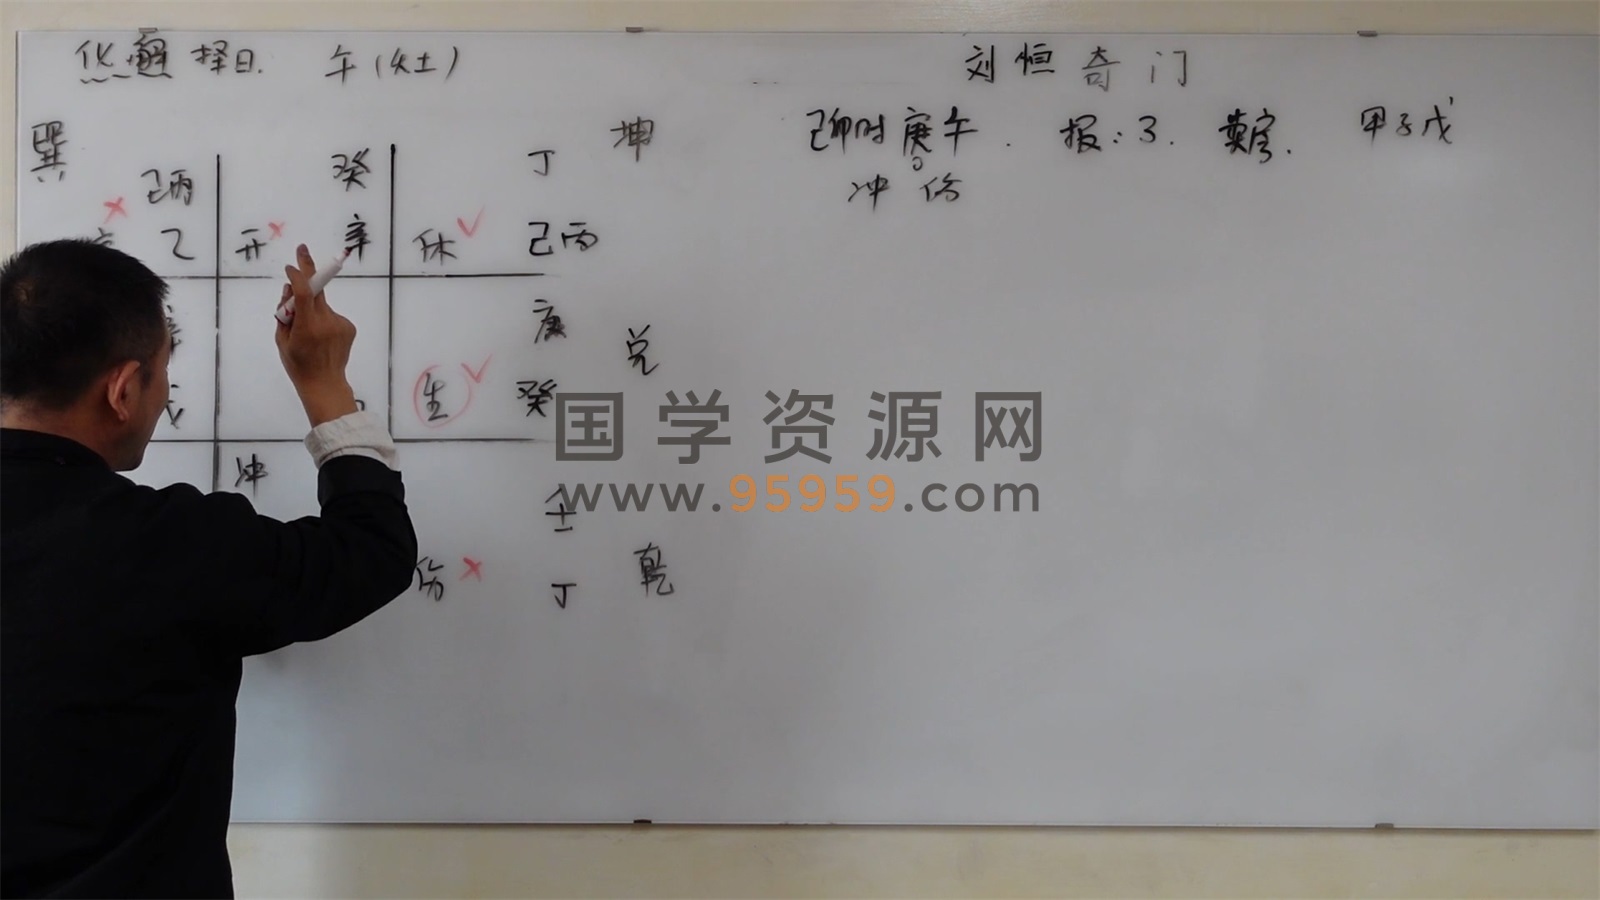 化解择日. 午(火土)
刘恒奇门
己卯时庚午. 报:3. 卖房. 甲子戊
冲 伤
巽 己丙 癸 丁 坤
乙 开 辛 休 己丙
庚 兑
生 癸
国学资源网
www.95959.com
冲 壬
伤 丁 乾